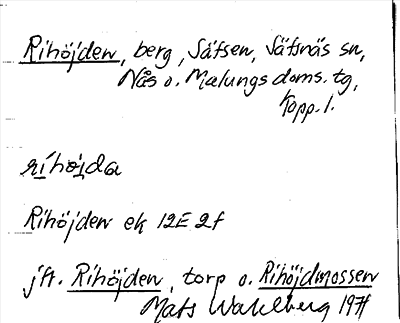 Rihöjden, berg, Säfsen, Säfsnäs sn,
Nås o. Malungs doms. tg,
Kopp. l.
ríhø̀įda
Rihöjden ek 12E 2f
jfr. Rihöjden, torp o. Rihöjdmossen
Mats Wahlberg 1971